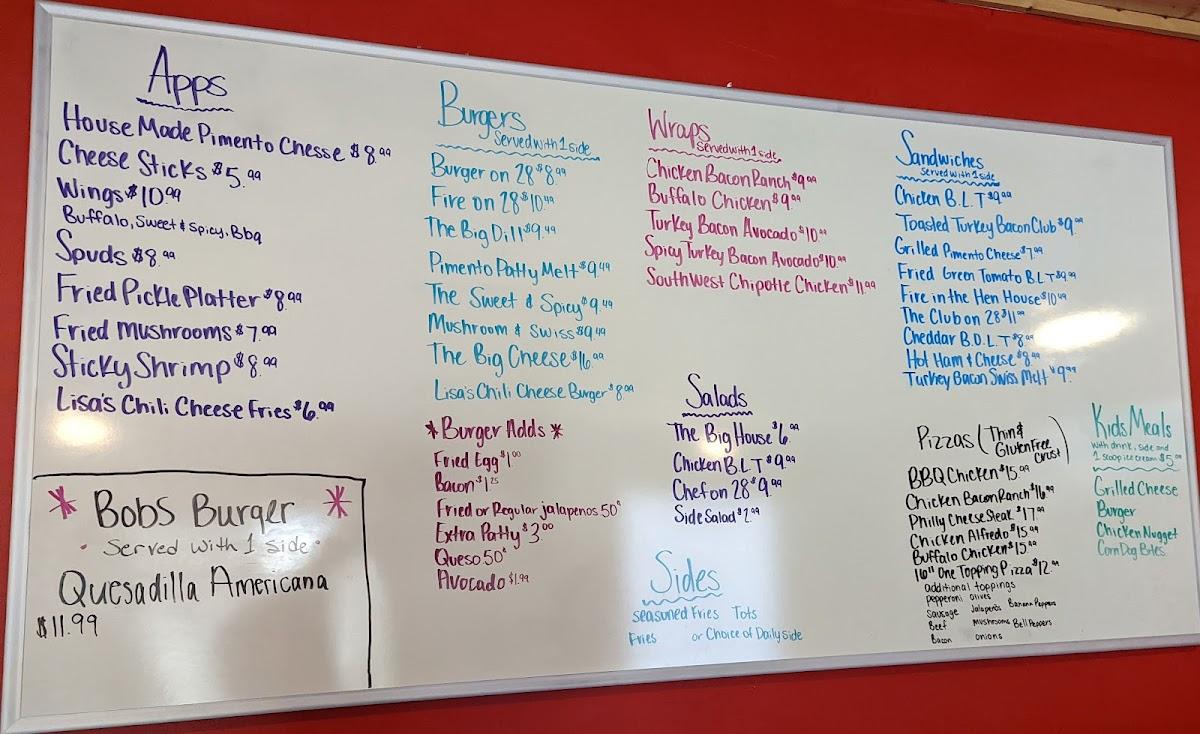 Apps
House Made Pimento Chesse $8.99
Cheese Sticks $5.99
Wings $10.99
Buffalo, Sweet & Spicy, Bbq
Spuds $8.99
Fried Pickle Platter $8.99
Fried Mushrooms $7.99
Sticky Shrimp $8.99
Lisa's Chili Cheese Fries $6.99
* Bobs Burger *
• Served with 1 side •
Quesadilla Americana
$11.99
Burgers
Served with 1 side
Burger on 28 $8.99
Fire on 28 $10.49
The Big Dill $9.49
Pimento Patty Melt $9.49
The Sweet & Spicy $9.49
Mushroom & Swiss $9.49
The Big Cheese $16.99
Lisa's Chili Cheese Burger $8.99
* Burger Adds *
Fried Egg $1.00
Bacon $1.25
Fried or Regular jalapenos 50¢
Extra Patty $3.00
Queso 50¢
Avocado $1.99
Wraps
Served with 1 side
Chicken Bacon Ranch $9.99
Buffalo Chicken $9.99
Turkey Bacon Avocado $10.99
Spicy Turkey Bacon Avocado $10.99
SouthWest Chipotle Chicken $11.99
Salads
The Big House $6.99
Chicken B.L.T $9.99
Chef on 28 $9.99
Side Salad $2.99
Sides
Seasoned Fries Tots
Fries or Choice of Daily side
Sandwiches
Served with 1 side
Chicken B.L.T $9.99
Toasted Turkey Bacon Club $9.99
Grilled Pimento Cheese $7.99
Fried Green Tomato B.L.T $9.99
Fire in the Hen House $10.49
The Club on 28 $11.99
Cheddar B.O.L.T $8.99
Hot Ham & Cheese $8.99
Turkey Bacon Swiss Melt $9.99
Pizzas (Thin & Gluten Free Crust)
BBQ Chicken $15.99
Chicken Bacon Ranch $16.99
Philly Cheese Steak $17.99
Chicken Alfredo $15.99
Buffalo Chicken $15.99
16" One Topping Pizza $12.99
additional toppings
Pepperoni olives
Sausage Jalapeños Banana Peppers
Beef Mushrooms Bell Peppers
Bacon onions
Kids Meals
With drink, side and
1 scoop ice cream $5.99
Grilled Cheese
Burger
Chicken Nugget
Corn Dog Bites